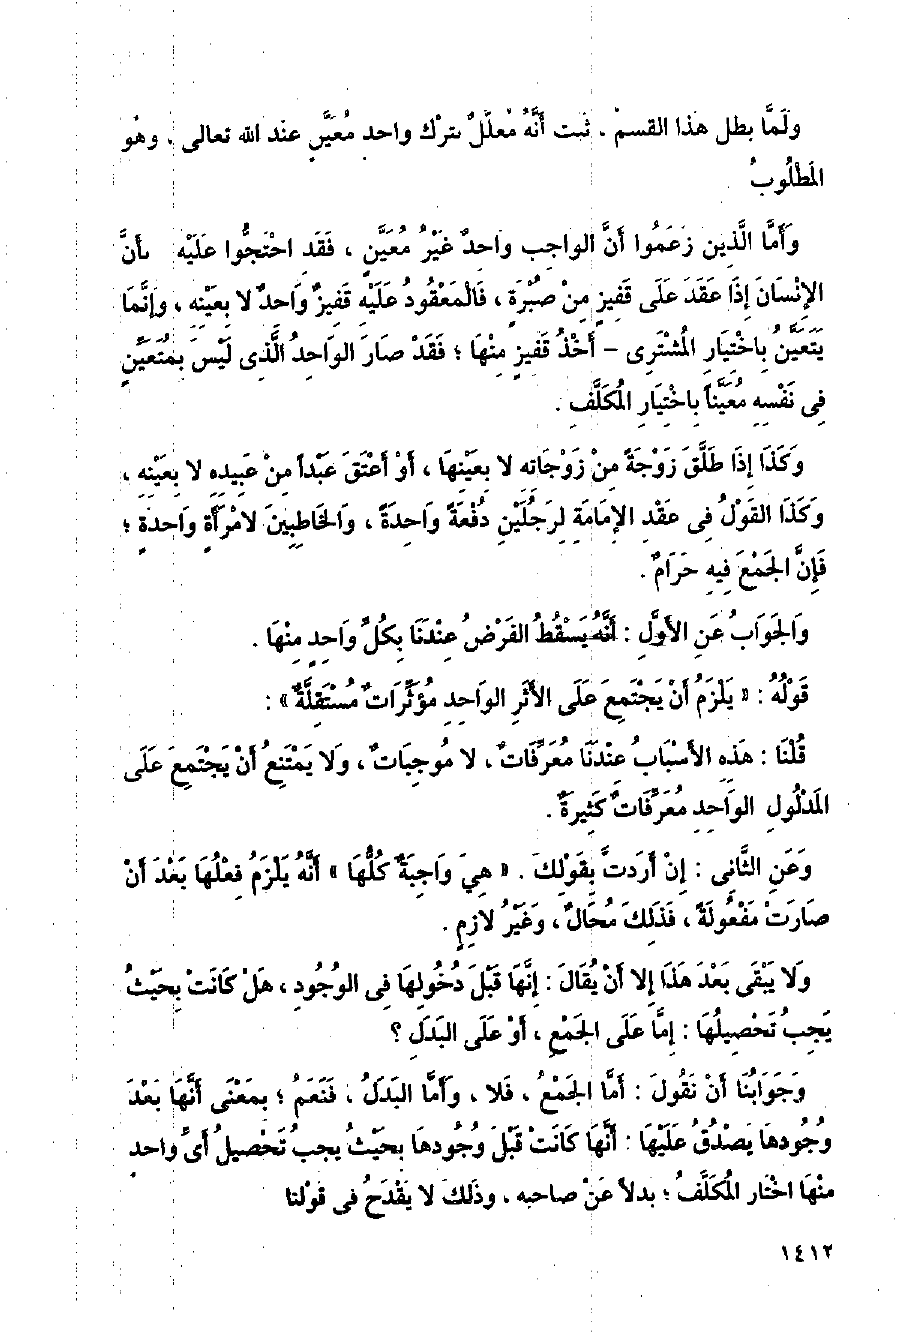 وَلَمَّا بطل هذا القسمُ ، ثبت أَنَّهُ مُعلَّلٌ بتَرْك واحد مُعَيَّنٍ عند الله تعالى ، وهُو
المَطْلُوبُ
وَأَمَّا الَّذين زعَمُوا أنَّ الواجب واحدٌ غَيْرُ مُعَيَّنٍ ، فَقَد احْتَجُّوا عَلَيْه بأنَّ
الإِنْسَانَ إذَا عَقَدَ عَلَى قَفِيزٍ مِنْ صُبْرَةٍ ، فَالْمَعْقُودُ عَلَيْه قَفِيزٌ وَاحدٌ لا بعَيْنِه ، وإنَّمَا
يَتَعَيَّنُ بِاخْتِيَارِ المُشْتَرِى – أَخْذُ قَفِيزٍ مِنْهَا ؛ فَقَدْ صَارَ الواحِدُ الَّذِى لَيْسَ بِمُتَعَيِّنٍ
فِى نَفْسِهِ مُعَيَّناً بِاخْتِيَارِ المُكَلَّفِ .
وَكَذَا إذَا طَلَّقَ زَوْجَةً مِنْ زَوْجَاتِه لا بِعَيْنِهَا ، أَوْ أَعْتَقَ عَبْداً مِنْ عَبِيدِهِ لا بِعَيْنِهِ ،
وَكَذَا القَوْلُ فِى عَقْدِ الإِمَامَةِ لِرَجُلَيْنِ دُفْعَةً وَاحِدَةً ، وَالخَاطِبِينَ لامْرَأَةٍ وَاحِدَةٍ ؛
فَإِنَّ الجَمْعَ فِيهِ حَرَامٌ .
وَالجَوَابُ عَنِ الأَوَّلِ : أَنَّهُ يَسْقُطُ الفَرْضُ عِنْدَنَا بِكُلِّ وَاحِدٍ مِنْهَا .
قَوْلُهُ : « يَلْزَمُ أَنْ يَجْتَمِعَ عَلَى الأَثَرِ الوَاحِدِ مُؤَثِّرَاتٌ مُسْتَقِلَّةٌ » :
قُلْنَا : هَذِهِ الأَسْبَابُ عِنْدَنَا مُعَرِّفَاتٌ ، لا مُوجِبَاتٌ ، وَلا يَمْتَنِعُ أَنْ يَجْتَمِعَ عَلَى
المَدْلُولِ الوَاحِدِ مُعَرِّفَاتٌ كَثِيرَةٌ .
وَعَنِ الثَّانِى : إِنْ أَرَدتَّ بِقَوْلِكَ . « هِىَ وَاجِبَةٌ كُلُّهَا » أَنَّهُ يَلْزَمُ فِعْلُهَا بَعْدَ أَنْ
صَارَتْ مَفْعُولَةً ، فَذَلِكَ مُحَالٌ ، وَغَيْرُ لازِمٍ .
وَلا يَبْقَى بَعْدَ هَذَا إِلا أَنْ يُقَالَ : إِنَّهَا قَبْلَ دُخُولِهَا فِى الوُجُودِ ، هَلْ كَانَتْ بِحَيْثُ
يَجِبُ تَحْصِيلُهَا : إِمَّا عَلَى الجَمْعِ ، أَوْ عَلَى البَدَلِ ؟
وَجَوَابُنَا أَنْ نَقُولَ : أَمَّا الجَمْعُ ، فَلا ، وَأَمَّا البَدَلُ ، فَنَعَمْ ؛ بِمَعْنَى أَنَّهَا بَعْدَ
وُجُودِهَا يَصْدُقُ عَلَيْهَا : أَنَّهَا كَانَتْ قَبْلَ وُجُودِهَا بِحَيْثُ يجبُ تَحْصِيلُ أَىِّ واحد
مِنْهَا اخْتَار المُكَلَّفُ ؛ بدلاً عَنْ صاحبه ، وذَلِكَ لا يَقْدَحُ فى قَوْلنا
١٤١٢